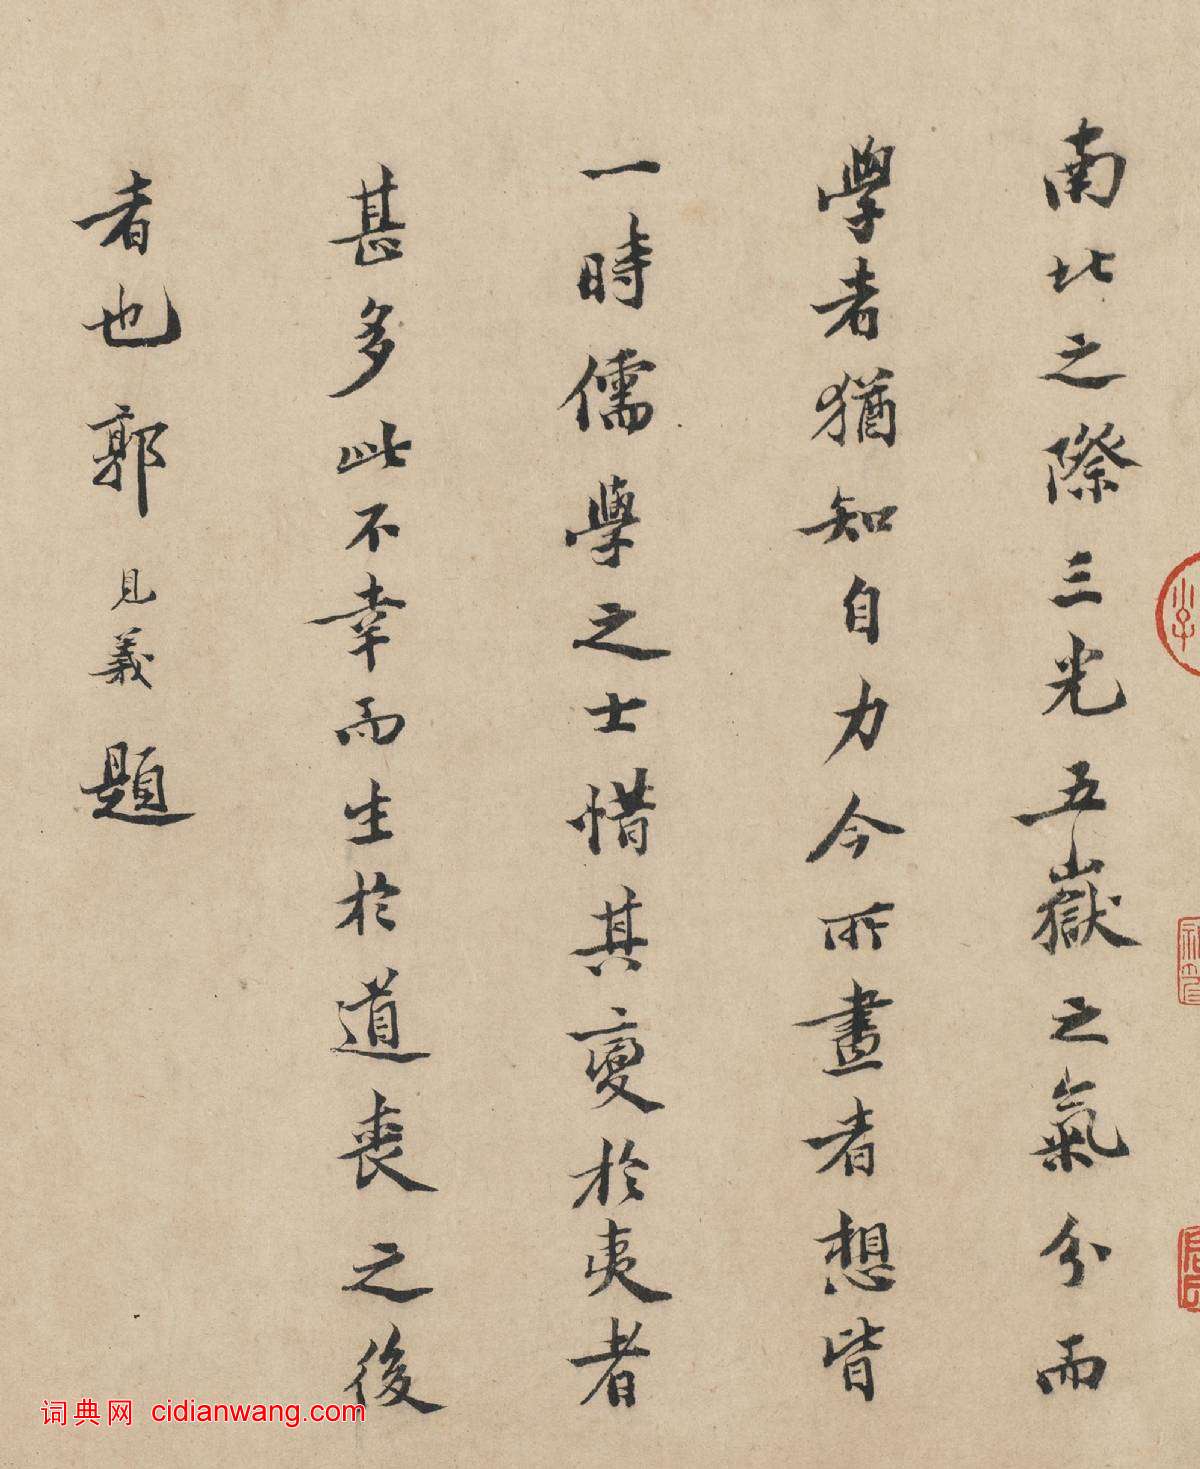 南北之際三光五嶽之氣分而
學者猶知自力今所畫者想皆
一時儒學之士惜其變於夷者
甚多此不幸而生於道喪之後
者也郭見義題
词典网 cidianwang.com